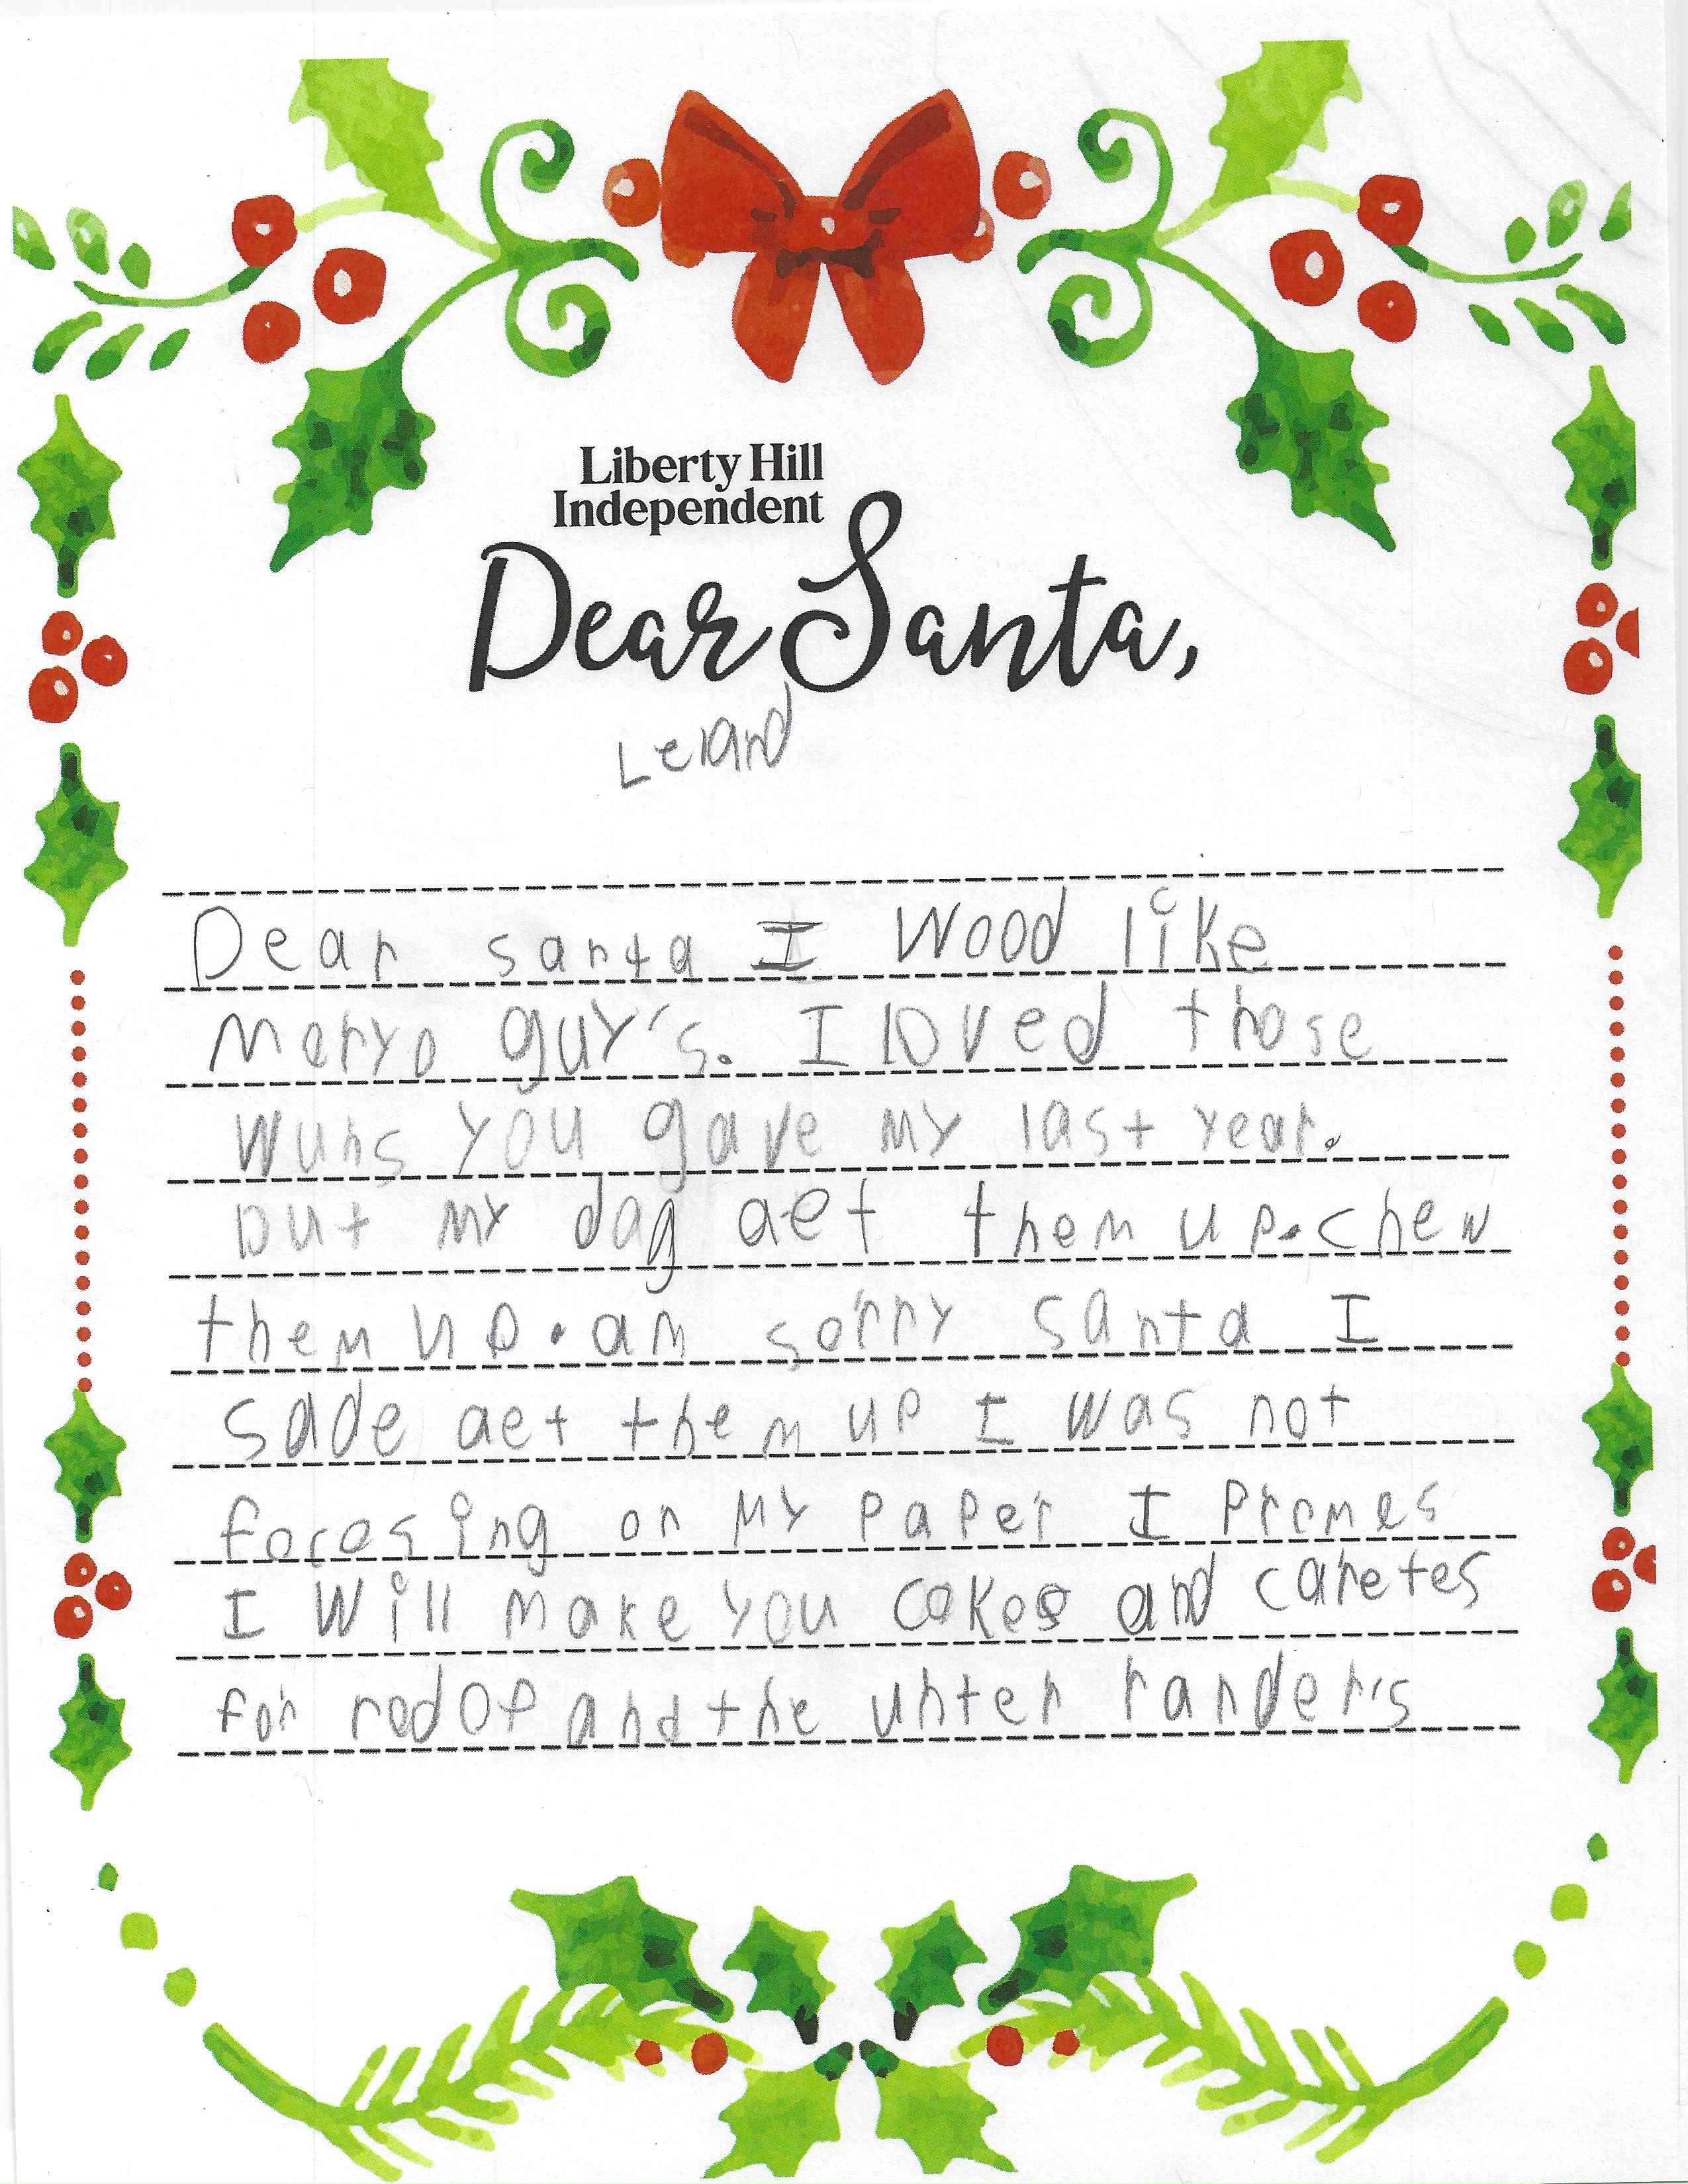 Liberty Hill
Independent
Dear Santa,
Leland
Dear santa I Wood like
Meryo guy's. I loved those
wuns you gave my last year.
but my dag aet them up.chew
them up.am sorry santa I
sade aet them up I was not
focesing on my paper I promes
I will make you cokes and caretes
for rodof and the unter randers